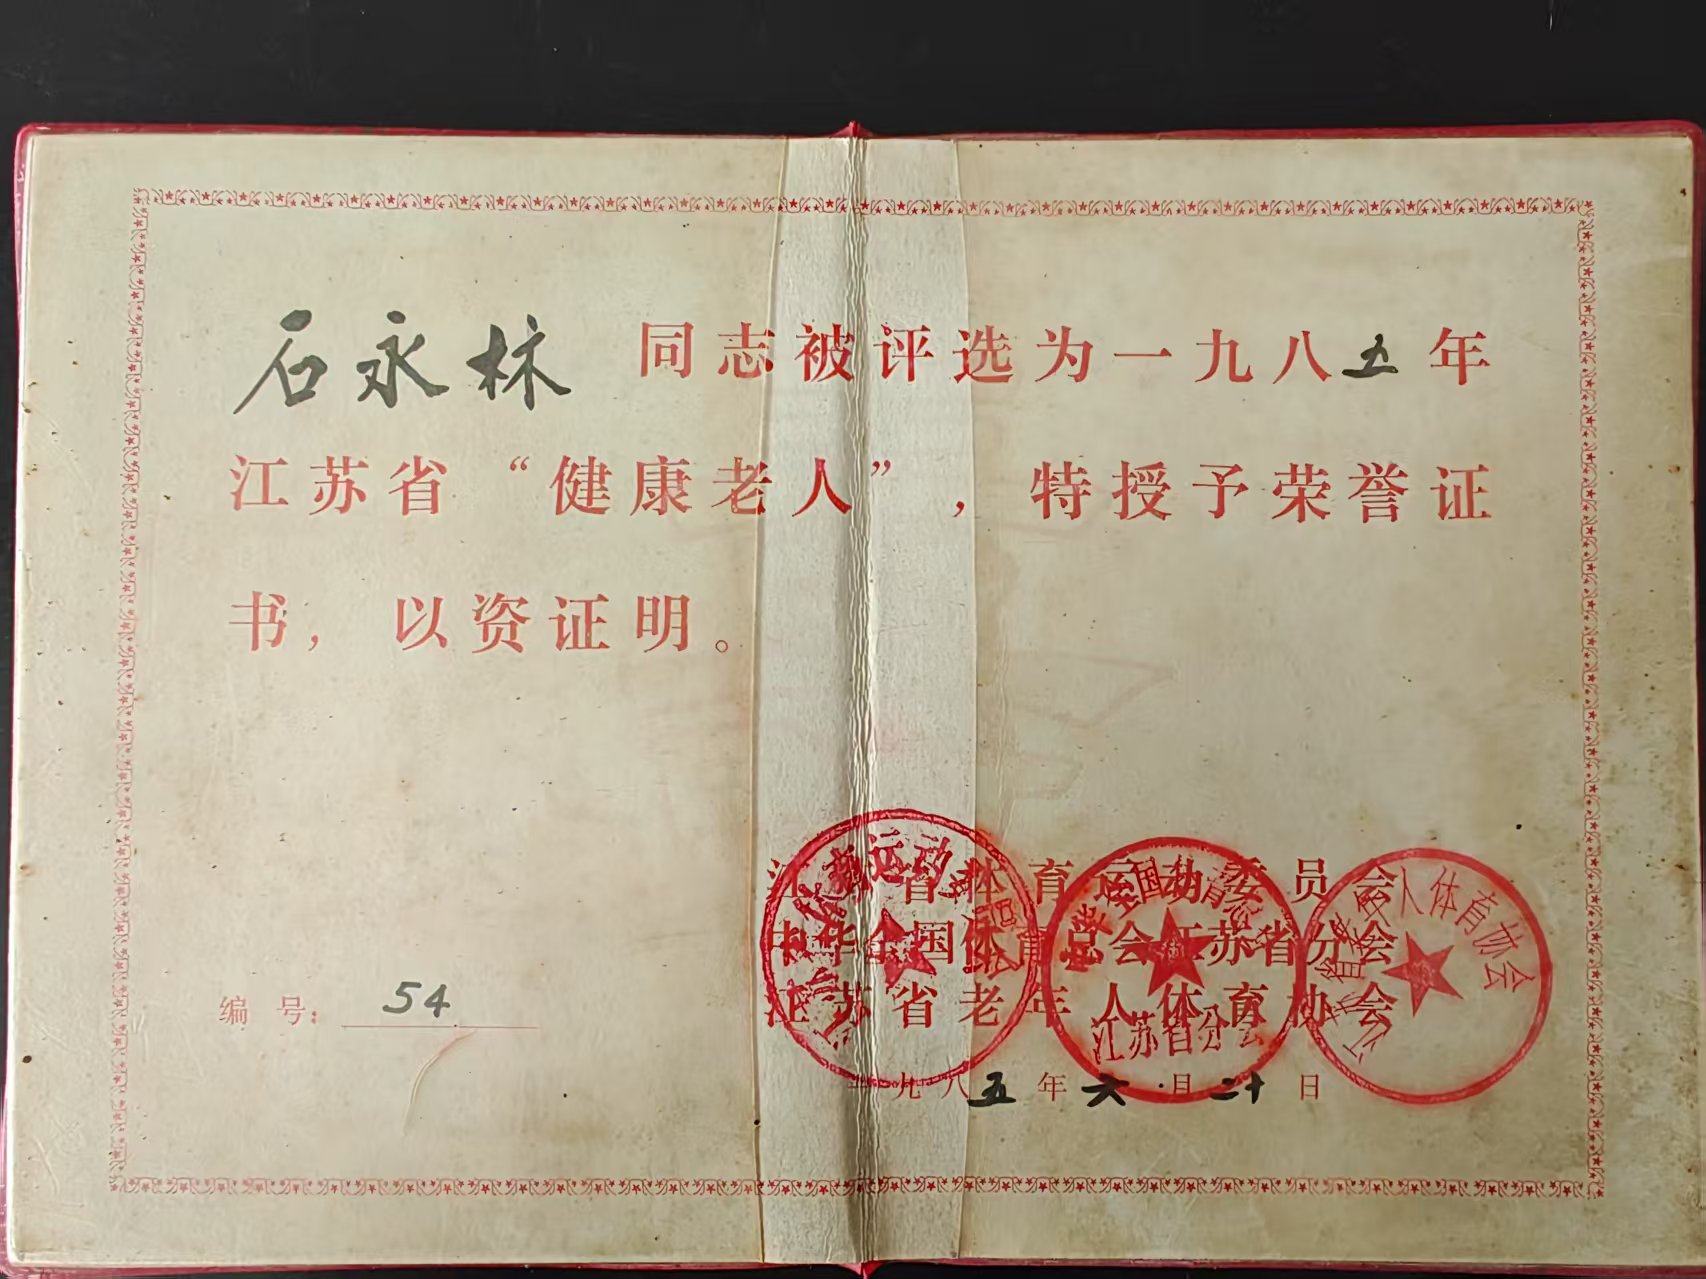 石永林 同志被评选为一九八五年
江苏省“健康老人”,特授予荣誉证
书,以资证明。
江苏省体育运动委员会
中华全国体育总会江苏省分会
江苏省老年人体育协会
编号:54
一九八五年六月二十日
江苏省体育运动委员会
中华全国体育总会
江苏省分会
江苏省老年人体育协会